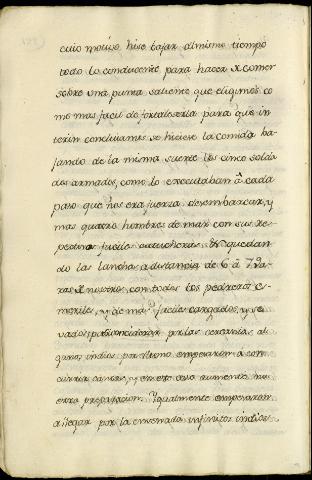 cuio motivo hise bajar al mismo tiempo
todo lo conducente para hacer de comer
sobre una punta saliente que eligimos co
mo mas facil de fortaleserla para que in
terin concluiamos se hiciese la comida ba
jando de la misma suerte los cinco solda
dos armados, como lo executaban â cada
paso que nos era fuerza desembarcar, y
mas quatro hombres de mar con sus res
pectivos fusiles quedan
do las lanchas a distancia de 6 â 7 va
ras de nosotros con todos los pedreros es
meriles, y de mas fusiles cargados, y
por las cercanias al
gunos indios por ultimo empezaron a con
currir canoas, y en este caso aumento nu
estra preparacion. Ygualmente empezaron
a llegar por la ensenada infinitos indios